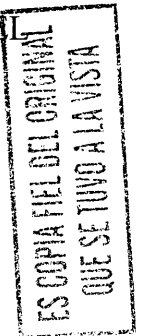 L
ES COPIA FIEL DEL ORIGINAL
QUE SE TUVO A LA VISTA